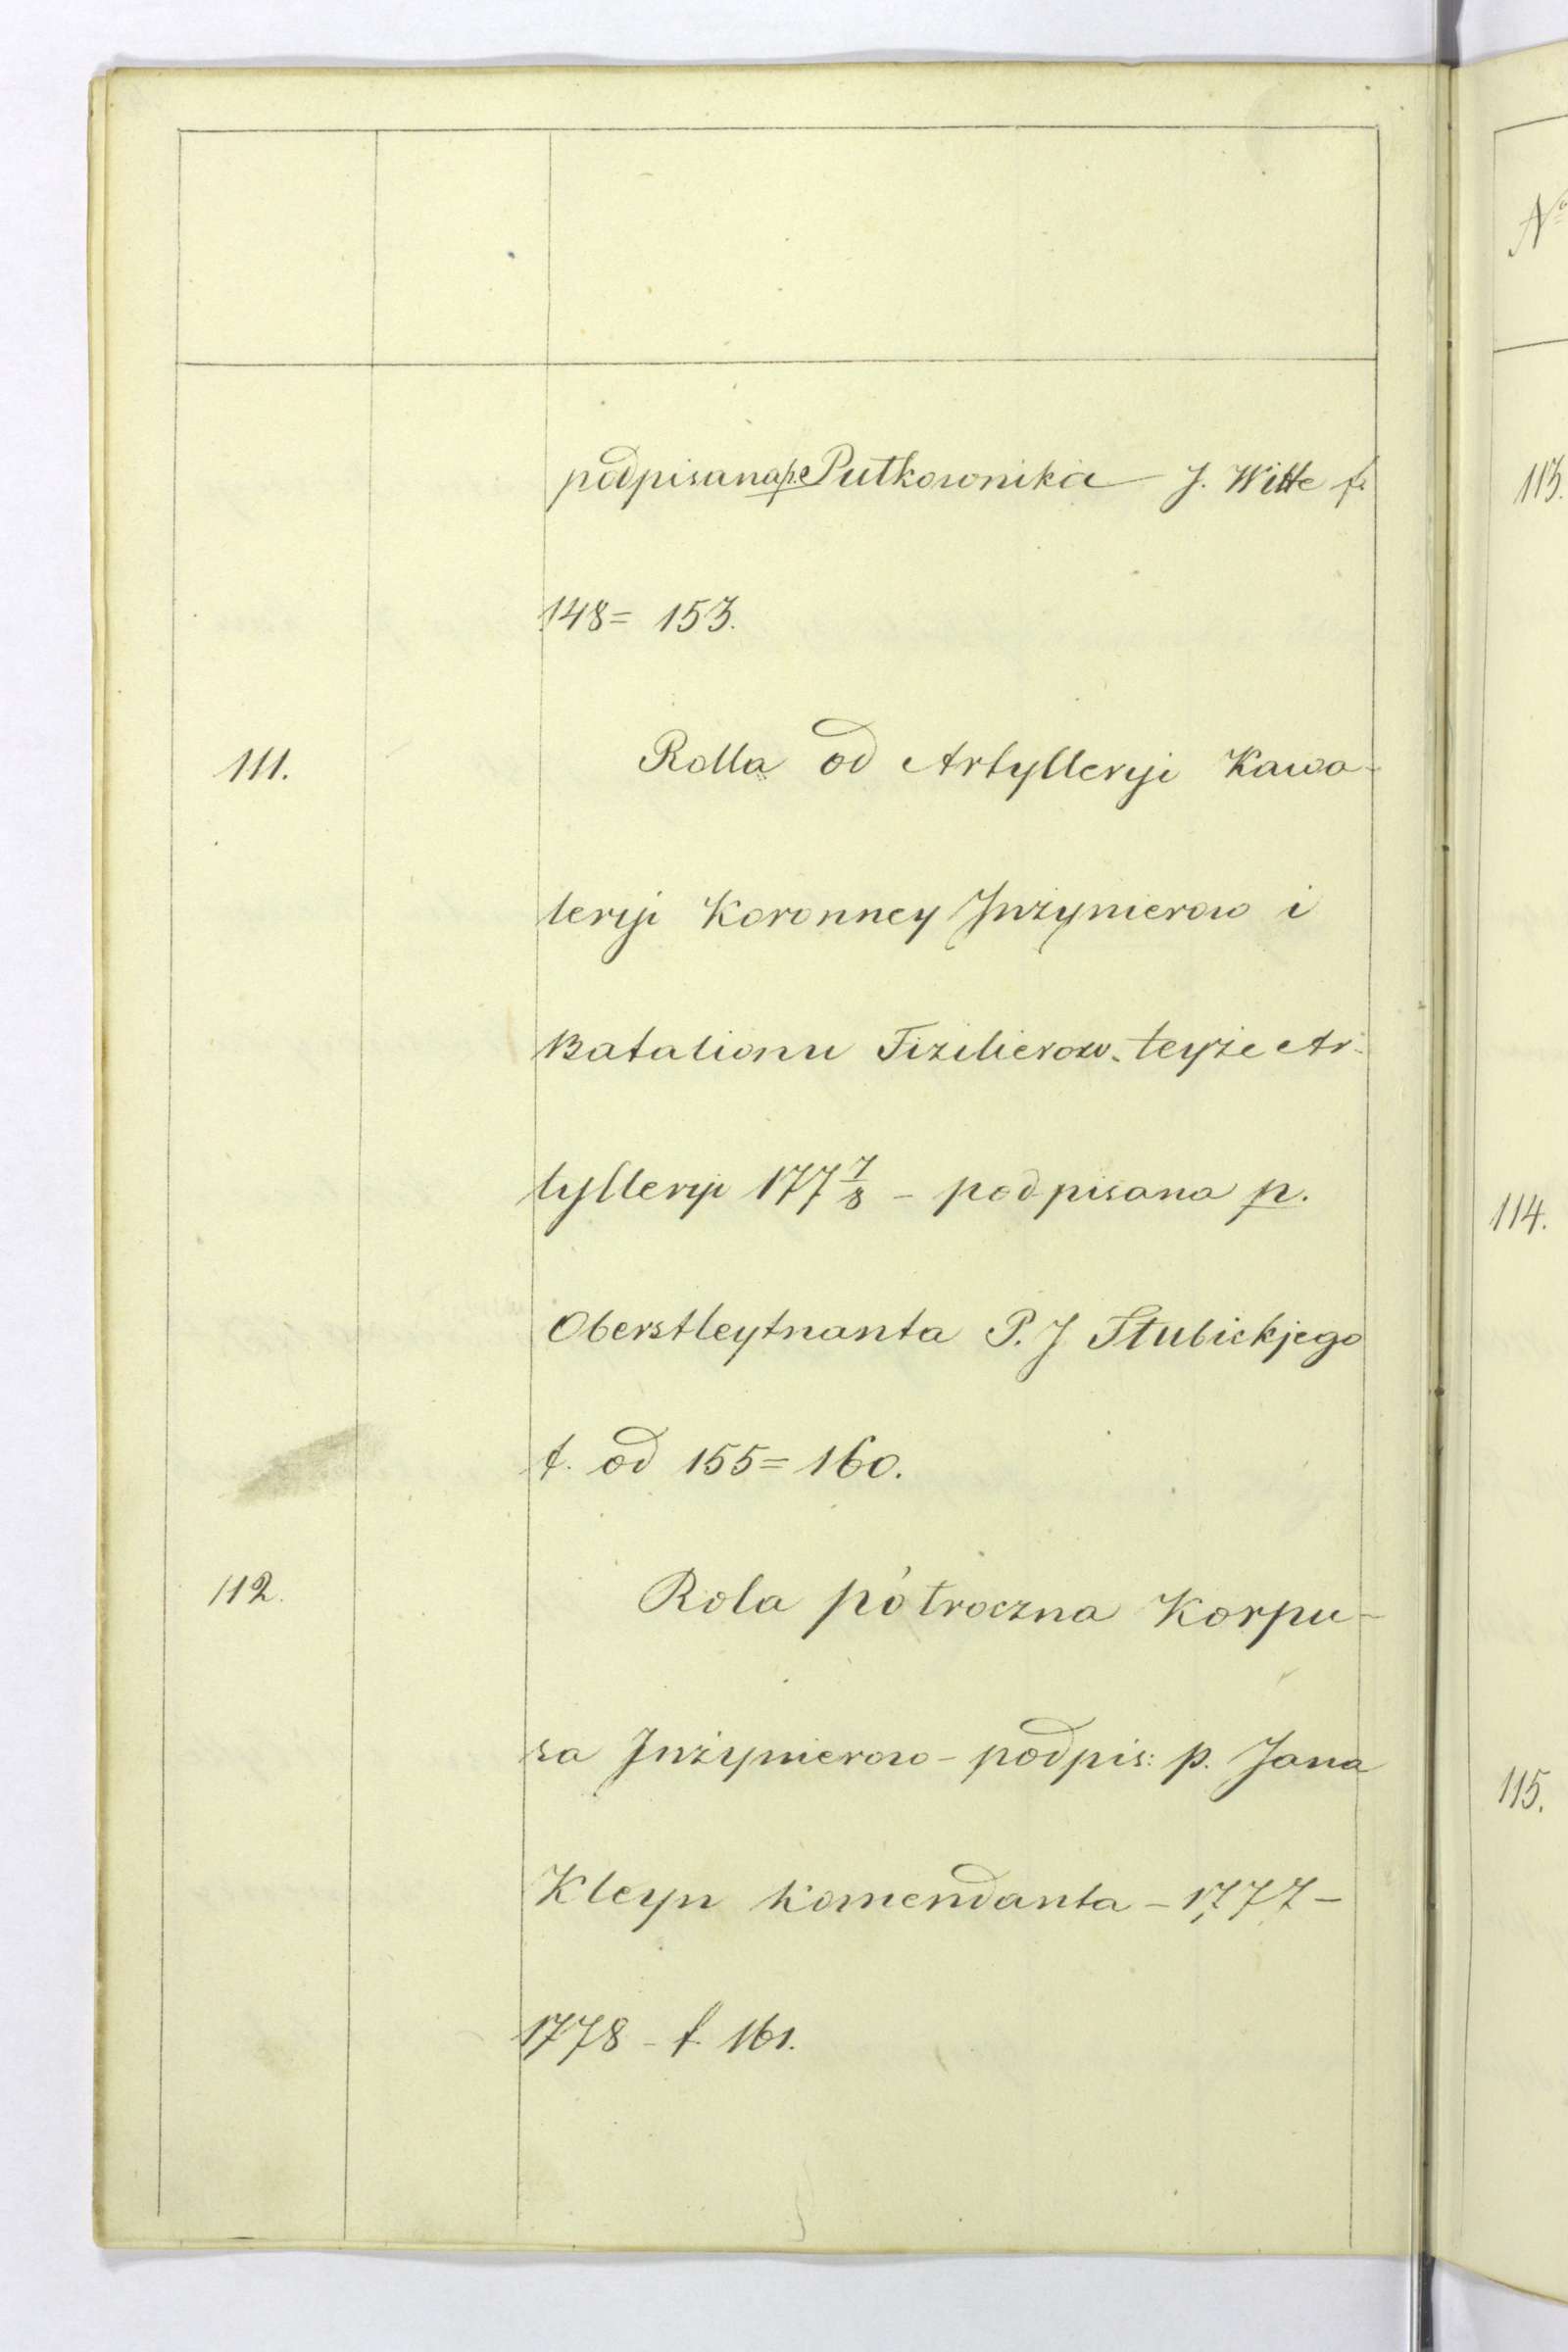 podpisana p.e Pułkownika J. Witte f.
148= 153.
111. Rolla od Artylleryi Kawa-
leryi Koronney Jnżynierow i
Batalionu Fizilierow. teyże Ar-
tylleryi 177 7/8 - podpisana p.
Oberstleytnanta P. J Słubickjego
f. od 155= 160.
112. Rola półroczna Korpu-
sa Jnżynierow - podpis: p. Jana
Kleyn Komendanta - 1777 -
1778 - f. 161.
No
113.
114.
115.